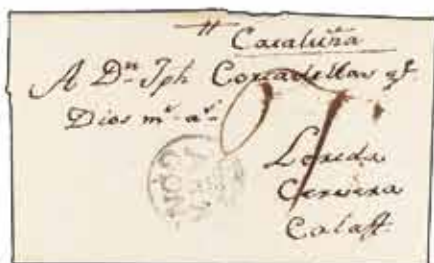 Cataluña
A Dn Jph Corcadellas qe
Dios ms as
Loreda
Cervera
Calaff